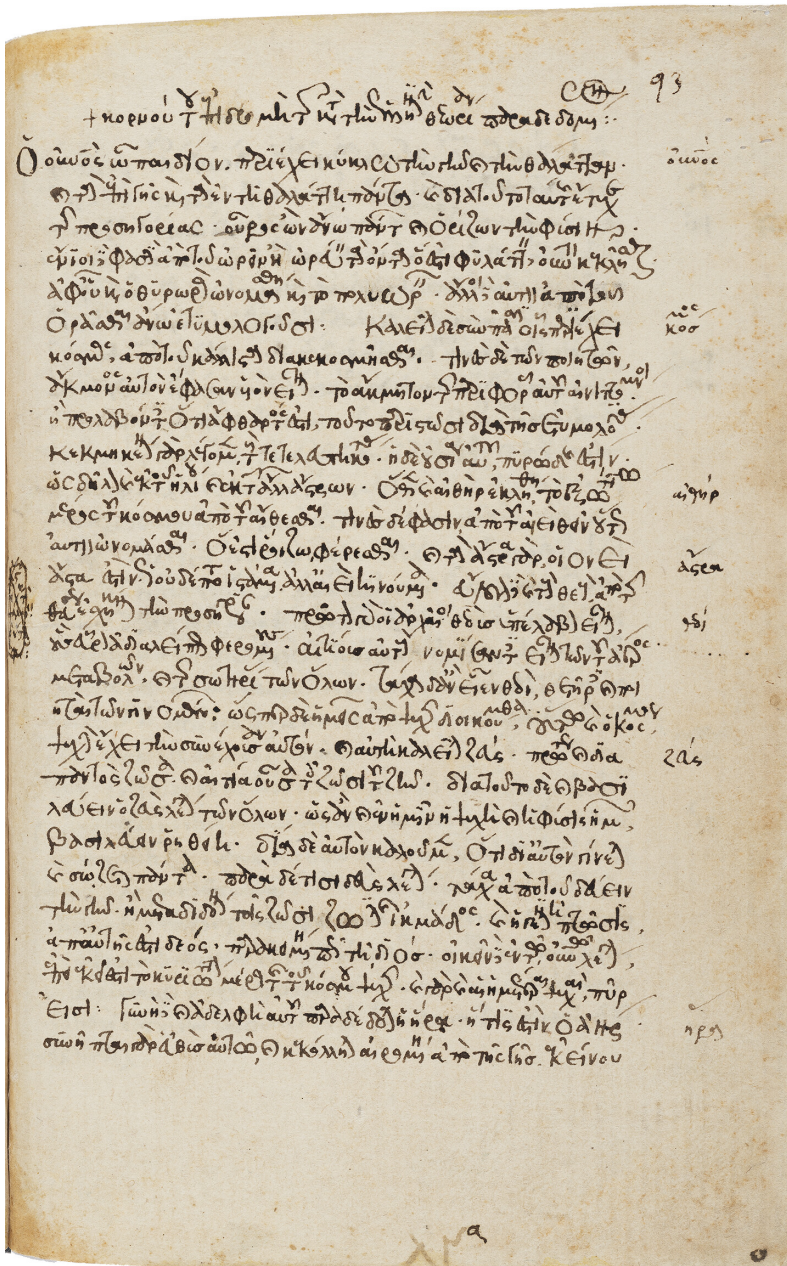 93
+ κορνούτου ἐπιδρομὴ τῶν κατὰ τὴν ἑλληνικὴν θεωρίαν παραδεδομένων:
Ὁ οὐρανὸς ὦ παιδίον, περιέχει κύκλῳ τὴν γῆν καὶ τὴν θάλατταν· οὐρανός
καὶ τὰ ἐπὶ γῆς καὶ τὰ ἐν τῇ θαλάττῃ πάντα· καὶ διὰ τοῦτο ταύτης ἔτυχε
τῆς προσηγορίας· οὖρος ὢν ἄνω πάντων καὶ ὁρίζων τὴν φύσιν.
ἔνιοι δέ φασιν ἀπὸ τοῦ ὠρεῖν ἢ ὠρεύειν τὰ ὄντα ὅ ἐστι φυλάττειν, οὐρανὸν κεκλῆσθαι·
ἀφ' οὗ καὶ ὁ θυρωρὸς ὠνομάσθη καὶ τὸ πολυωρεῖν· ἄλλοι δὲ αὐτὸν ἀπὸ τοῦ
ὁρᾶσθαι ἄνω ἐτυμολογοῦσι: καλεῖται δὲ σὺν πᾶσιν οἷς περιέχει κόσμος
κόσμος, ἀπὸ τοῦ κάλλιστα διακεκοσμῆσθαι· τινὲς δὲ τῶν ποιητῶν,
ἄκμονος αὐτὸν ἔφασαν υἱὸν εἶναι· τὸ ἄκμητον τῆς περιφορᾶς αὐτοῦ αἰνιττόμενοι·
ἢ προλαβόντες ὅτι ἄφθαρτός ἐστι, τοῦτο παριστῶσι διὰ τῆς ἐτυμολογίας·
κεκμηκέναι γὰρ λέγομεν τοὺς τετελευτηκότας· ἡ δὲ οὐσία αὐτοῦ, πυρώδης ἐστίν·
ὡς δῆλον ἐκ τοῦ ἡλίου καὶ ἐκ τῶν ἄλλων ἄστρων· ὅθεν καὶ αἰθὴρ ἐκλήθη, τὸ ἐξωτάτω αἰθήρ
μέρος τοῦ κόσμου ἀπὸ τοῦ αἴθεσθαι· τινὲς δέ φασιν, ἀπὸ τοῦ ἀεὶ θεῖν οὕτως
αὐτὸν ὠνομάσθαι· ὅ ἐστι ῥοίζῳ φέρεσθαι· καὶ τὰ ἄστρα γὰρ, οἱονεὶ ἄστρα
ἄστατα ἐστὶν ὡς οὐδέποτε ἱστάμενα, ἀλλ' ἀεὶ κινούμενα· εὔλογον δὲ καὶ τοὺς θεοὺς, ἀπὸ τῆς
θεύσεως ἐσχηκέναι τὴν προσηγορίαν· πρῶτον γὰρ οἱ ἀρχαῖοι θεοὺς ὑπελάμβανον εἶναι, θεοί
οὓς ἑώρων ἀδιαλείπτως φερομένους· αἰτίους αὐτοὺς νομίσαντες εἶναι τῶν τοῦ ἀέρος
μεταβολῶν· καὶ τῆς σωτηρίας τῶν ὅλων· τάχα δ' ἂν εἶεν θεοὶ, θετῆρες καὶ ποι
ηταὶ τῶν γινομένων: ὥσπερ δὲ ἡμεῖς ἀπὸ ψυχῆς διοικούμεθα, οὕτω καὶ ὁ κόσμος
ψυχὴν ἔχει τὴν συνέχουσαν αὐτόν· καὶ αὕτη καλεῖται ζεύς· πρώτως καὶ διὰ ζεύς
παντὸς ζῶσα· καὶ αἰτία οὖσα τοῖς ζῶσι τοῦ ζῆν· διὰ τοῦτο δὲ καὶ βασι
λεύειν ὁ ζεὺς λέγεται τῶν ὅλων· ὡς ἂν καὶ ἐν ἡμῖν ἡ ψυχὴ καὶ ἡ φύσις ἡμῶν,
βασιλεύειν ῥηθείη· δία δὲ αὐτὸν καλοῦμεν, ὅτι δι' αὐτὸν γίνεται
καὶ σώζεται πάντα· παρὰ δέ τισι δεὺς λέγεται· τάχα ἀπὸ τοῦ δεύειν
τὴν γῆν· ἢ μεταδιδόναι τοῖς ζῶσι ζωτικῆς ἰκμάδος· καὶ ἡ γενικὴ πτῶσις,
ἀπ' αὐτῆς ἐστὶ δεός· παρακειμένη πως τῇ διός· οἰκεῖν δὲ ἐν τῷ οὐρανῷ λέγεται,
ἐπεὶ ἐκεῖ ἐστὶ τὸ κυριώτατον μέρος τῆς τοῦ κόσμου ψυχῆς· καὶ γὰρ καὶ αἱ ἡμέτεραι ψυχαὶ, πῦρ
εἰσι: γυνὴ δὲ καὶ ἀδελφὴ αὐτοῦ παραδέδοται ἡ ἥρα· ἥτις ἐστὶν ὁ ἀήρ· ἥρα
συνῆπται γὰρ εὐθὺς αὐτῷ, καὶ κεκόλληται αἰρομένη ἀπὸ τῆς γῆς ἐκείνου
α